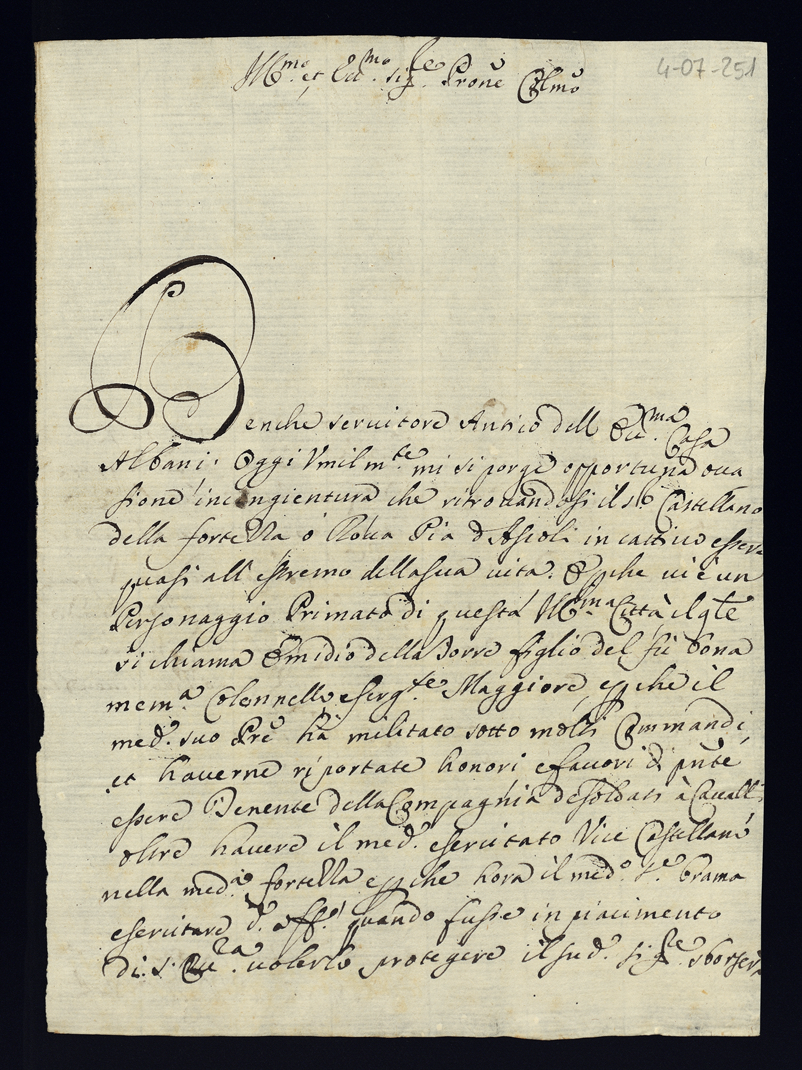 Ill.mo et Ecc.mo Sig.re Pròne Colmo
4-07-251
Benche servitore Antico dell Ecc.ma Casa
Albani. Oggi Vmilm.te mi si porge opportuna occa
sione incongientura che ritrovandosi il Castellano
della fortezza ò Rocca Pia d'Ascoli in cattivo essere
quasi all estremo della sua vita. E perche vi è un
Personaggio Primato di questa Ill.ma Città il qle
si chiama Emidio della Torre figlio del fù bona
mem.a Colonnello e serg.te Maggiore, e perche il
med.o suo Pre hà militato sotto molti Commandi,
et haverne riportate honori e favori di pnte
essere Tenente della Compaghia de Soldati à Cavallo
oltre havere il med.o esercitato Vice Castellano
nella med.a fortezza e perche hora il med.o brama
esercitare d.o off.o quando fusse in piacimento
di S. Ecc.za volerlo protegere il sud.o sig.re sborserà